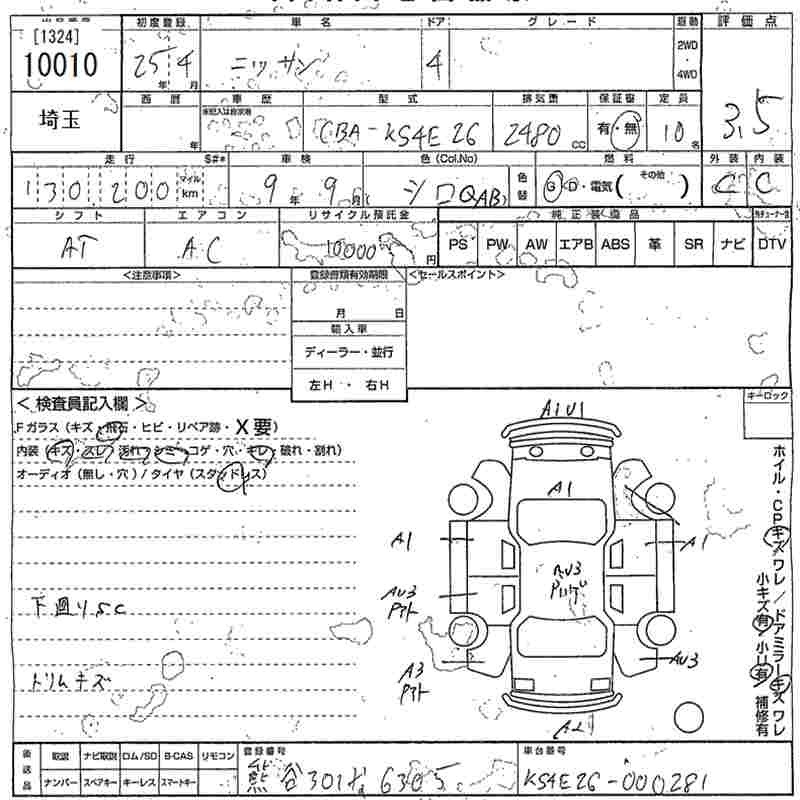 [1324]
10010
初度登録 車名 ドア グレード 駆動 評価点
25 4 年 月 ニッサン 4 2WD・4WD
埼玉
西暦 車歴 型式 排気量 保証書 定員
年 CBA-KS4E26 2480 CC 有・無 10名 3.5
走行 S#* 車検 色(Col.No) 色替 燃料 外装 内装
130,200 マイル km 9年 9月 シロ(QAB) G・D・電気( その他 ) C C
シフト エアコン リサイクル預託金 純正装備品
AT AC 10000 円 PS PW AW エアB ABS 革 SR ナビ DTV
<注意事項> 登録書類有効期限 <セールスポイント>
月 日
輸入車
ディーラー・並行
左H ・ 右H
<検査員記入欄> キーロック
Fガラス(キズ・飛石・ヒビ・リペア跡・X要)
内装(キズ・スレ・汚れ・シミ・コゲ・穴・キレ・破れ・割れ)
オーディオ(無し・穴)/タイヤ(スタッドレス)
A1U1
A1
A1 A1
AU3
AU3
アト
AU3
A3
アト
下廻りSC
トリムキズ
ホイル・CPキズワレ/ドアミラーキズワレ
小キズ有 小U有 補修有
後送品 取説 ナビ取説 ロム/SD B-CAS リモコン 登録番号 車台番号
ナンバー スペアキー キーレス スマートキー 熊谷 301 な 6305 KS4E26-000281